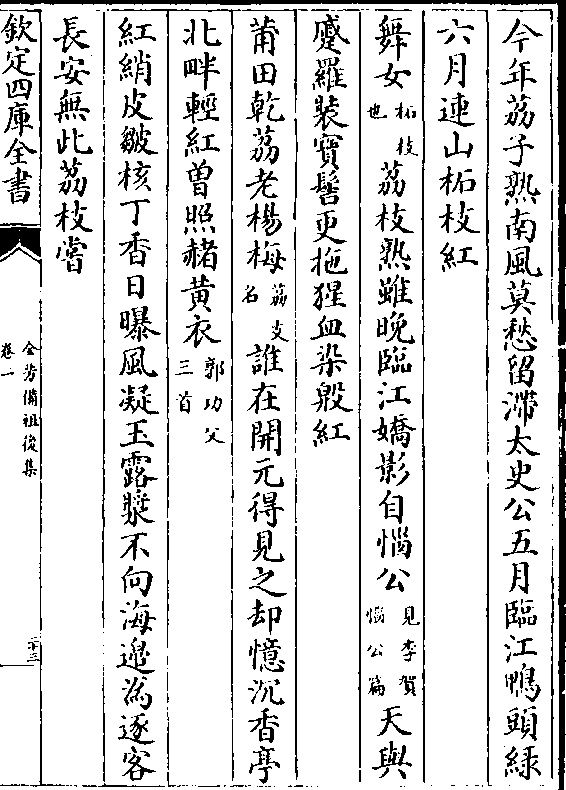 今年荔子熟南風莫愁留滯太史公五月臨江鴨頭綠
六月連山柘枝紅
舞女柘枝也荔枝熟雖晚臨江嬌影自惱公見李賀惱公篇天與
蹙羅裝寶髻更拖猩血染殷紅
莆田乾荔老楊梅荔支名誰在開元得見之却憶沉香亭
北畔輕紅曽照赭黄衣郭功父三首
紅綃皮皺核丁香日曝風凝玉露漿不向海邉為逐客
長安無此荔枝嘗
欽定四庫全書
全芳備祖後集
卷一
二十三